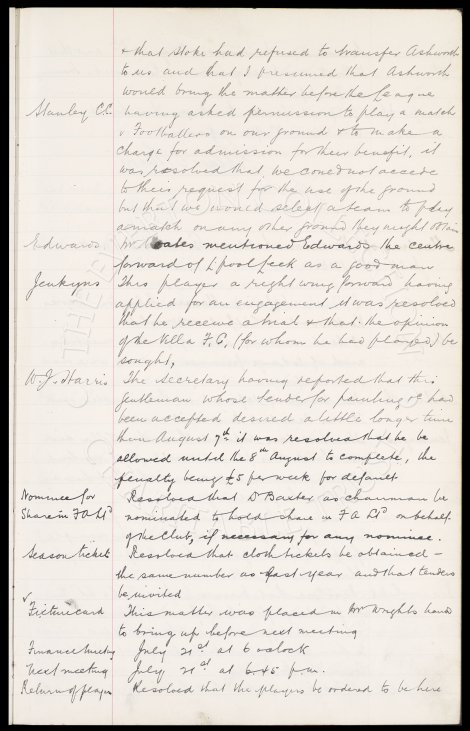 & that Stoke had refused to transfer Ashworth
to us and that I presumed that Ashworth
would bring the matter before the League
Stanley C.C. having asked permission to play a match
v Footballers on our ground & to make a
charge for admission for their benefit, it
was resolved that we could not accede
to their request for the use of the ground
but that we would select a team to play
a match on any other ground they might obtain
Edwards Mr Coates mentioned Edwards the centre
forward of L'pool Leek as a good man
Jenkyns This player a right wing forward having
applied for an engagement, it was resolved
that he receive a trial & that the opinion
of the Villa F.C. (for whom he had played) be
sought,
W.J. Harris The Secretary having reported that this
gentleman whose tender for painting &c had
been accepted desired a little longer time
than August 7th it was resolved that he be
allowed until the 8th August to complete, the
penalty being £5 per week for default
Nominee for Resolved that Dr Baxter as chairman be
Share in F A Ltd nominated to hold share in F A Ltd on behalf
of the Club, if necessary for any nominee.
Season tickets Resolved that cloth tickets be obtained -
the same number as last year and that tenders
be invited
Fixture card This matter was placed in Mr Wrights hands
to bring up before next meeting
Finance meeting July 21st at 6 o'clock
Next meeting July 21st at 6.45 p.m.
Return of players Resolved that the players be ordered to be here